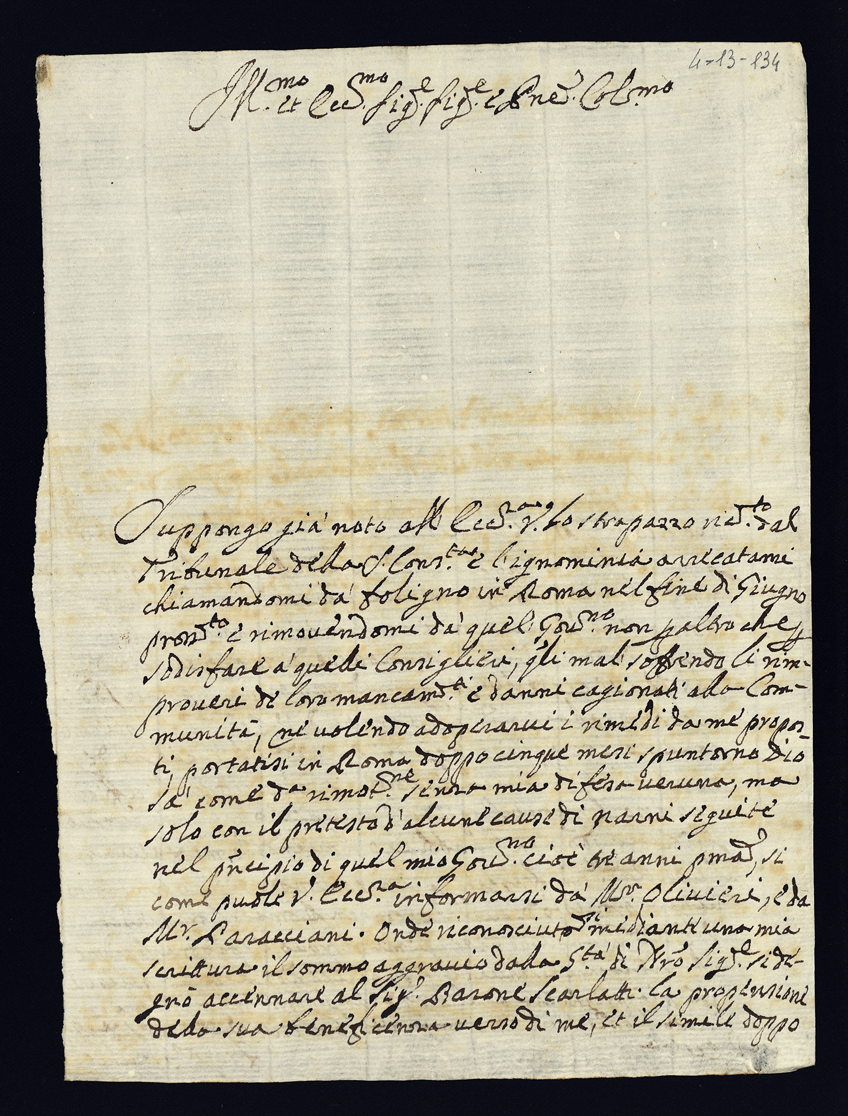 4-13-134
Ill.mo et Ecc.mo Sig.e Sig.e e Pne Col.mo
Suppongo già noto all Ecc.za v. lo strapazzo ric.to dal
Tribunale della S. Cons.ta e l'ignominia arrecatami
chiamandomi da Foligno in Roma nel fine di Giugno
pross.to e rimovendomi da quel Gov.no non p altro che p
sodisfare a quelli Consiglieri, q.li mal soffrendo li rim-
proveri de loro mancam.ti e danni cagionati alla Com-
munità, ne volendo adoperarvi i rimedi da me propos-
ti, portatisi in Roma doppo cinque mesi spuntorno Dio
sa come da rimot.ne senza mia difesa veruna, ma
solo con il pretesto d'alcune cause di nanni seguite
nel pncipio di quel mio Gov.no cioè tre anni pma, si
come puole V. Ecc.za informarsi da Mr. Olivieri, e da
Mr. Paracciani. Onde riconosciutosi mediante una mia
scrittura il sommo aggravio dalla S.tà di Nro Sig.e si de-
gnò accennare al Sig. Barone Scarlatti la propensione
della sua beneficenza verso di me, et il simile doppo